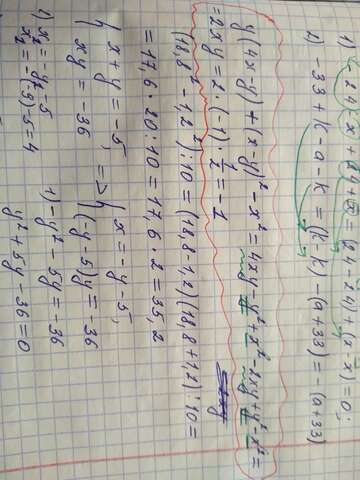 1) - 2,4 - (x + 2,4) + (x = 2,4 - 2,4) + (x - x) = 0;
2) -33 + k - a - k = (k - k) - (a + 33) = -(a + 33)
y(4x - y) + (x - y)² - x² = 4xy - y² + x² - 2xy + y² - x² =
= 2xy = 2 · (-1) · 1/2 = -1
(18,8² - 1,2²) : 10 = (18,8 - 1,2)(18,8 + 1,2) : 10 =
= 17,6 · 20 : 10 = 17,6 · 2 = 35,2
{ x + y = -5, => { x = -y - 5,
{ xy = -36 { (-y - 5)y = -36
1) -y² - 5y = -36
y² + 5y - 36 = 0